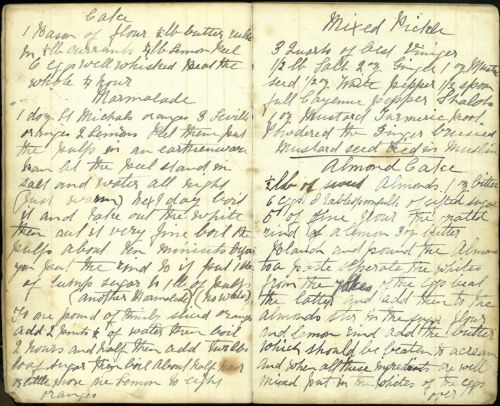 Cake
1 Bason of flour ½ lb butter rubbed
in ½ lb currants ¼ lb Lemon Peel
6 eggs well whisked beat the
whole ½ hour
Marmalade
1 doz St Michals oranges 3 Seville
oranges 2 Lemons Peel them put
the pulps in an earthenware
pan let the peel stand in
salt and water all night
(Just warm) next day boil
it and take out the white
then cut it very fine boil the
pulps about ten minuits before
you put the rind to it put 1 lb
of lump sugar to 1 lb of pulps
(another Marmalade) (no water)
To one pound of thinly sliced oranges
add 2 pints of water then boil
2 hours and half then add two lbs
of sugar then boil about half hour
or little more one lemon to eight
oranges
Mixed Pickle
3 Quarts of best Vinegar
½ lb Salt 2 oz Ginger 1 oz Mustard
seed ½ oz White pepper ½ spoon
full Cayenne pepper Shalots
1 oz Mustard Turmeric root
Powdered the Ginger bruised
Mustard seed tied in Muslin
Almond Cake
½ lb of sweet Almonds 1 oz bitter
6 eggs 8 tablespoonfuls of sifted sugar
of fine flour the grated
rind of a lemon 3 oz butter
and pound the Almonds
to a paste seperate the whites
from the yolks of the eggs beat
the latter and add them to the
almonds stir in the sugar flour
and lemon rind add the butter
which should be beaten to a cream
and when all these ingredients are well
mixed put in the whites of the eggs
over